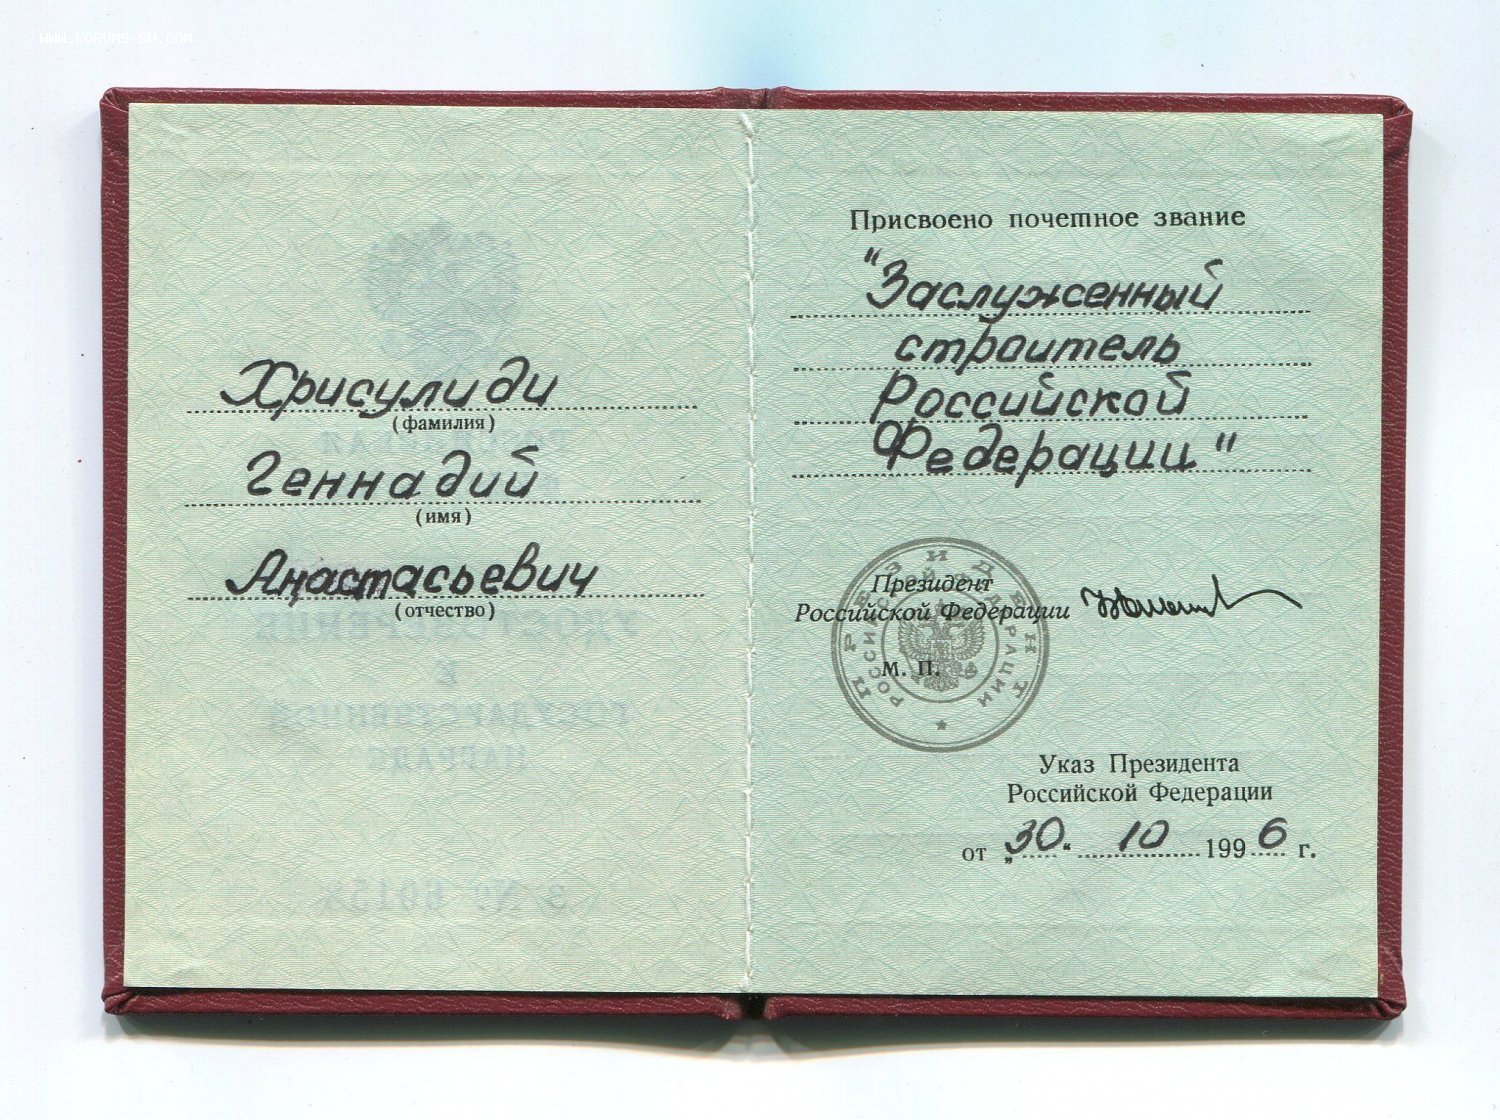 WWW.FORUMS-SU.COM
Хрисулиди
(фамилия)
Геннадий
(имя)
Анастасьевич
(отчество)
Присвоено почетное звание
"Заслуженный
строитель
Российской
Федерации"
Президент
Российской Федерации
М. П.
ПРЕЗИДЕНТ
РОССИЙСКОЙ ФЕДЕРАЦИИ
Указ Президента
Российской Федерации
от „30“ 10 1996 г.